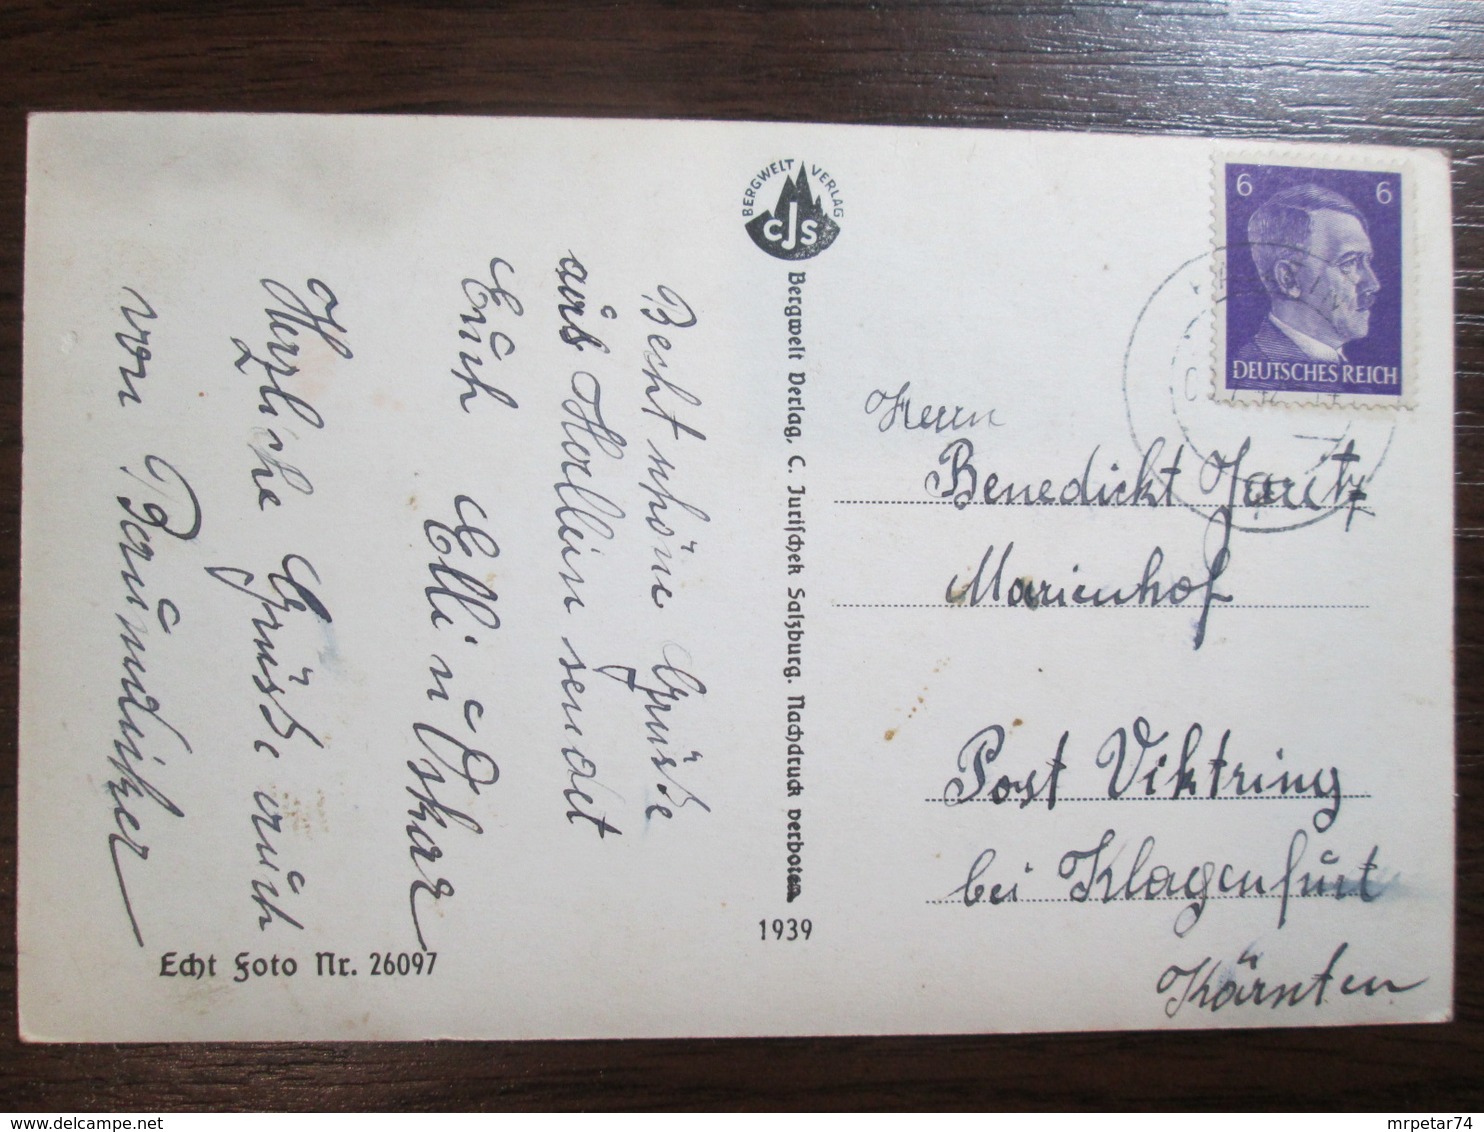 Recht schöne Grüße
aus Hallein sendet
Euch Elli u Oskar
Herzliche Grüße auch
von
Echt Foto Nr. 26097
BERGWELT VERLAG
CJS
Bergwelt Verlag, C. Jurischek Salzburg. Nachdruck verboten
1939
6 6
DEUTSCHES REICH
Herrn
Benedickt Jaritz
Marienhof
Post Viktring
bei Klagenfurt
Kärnten
mrpetar74